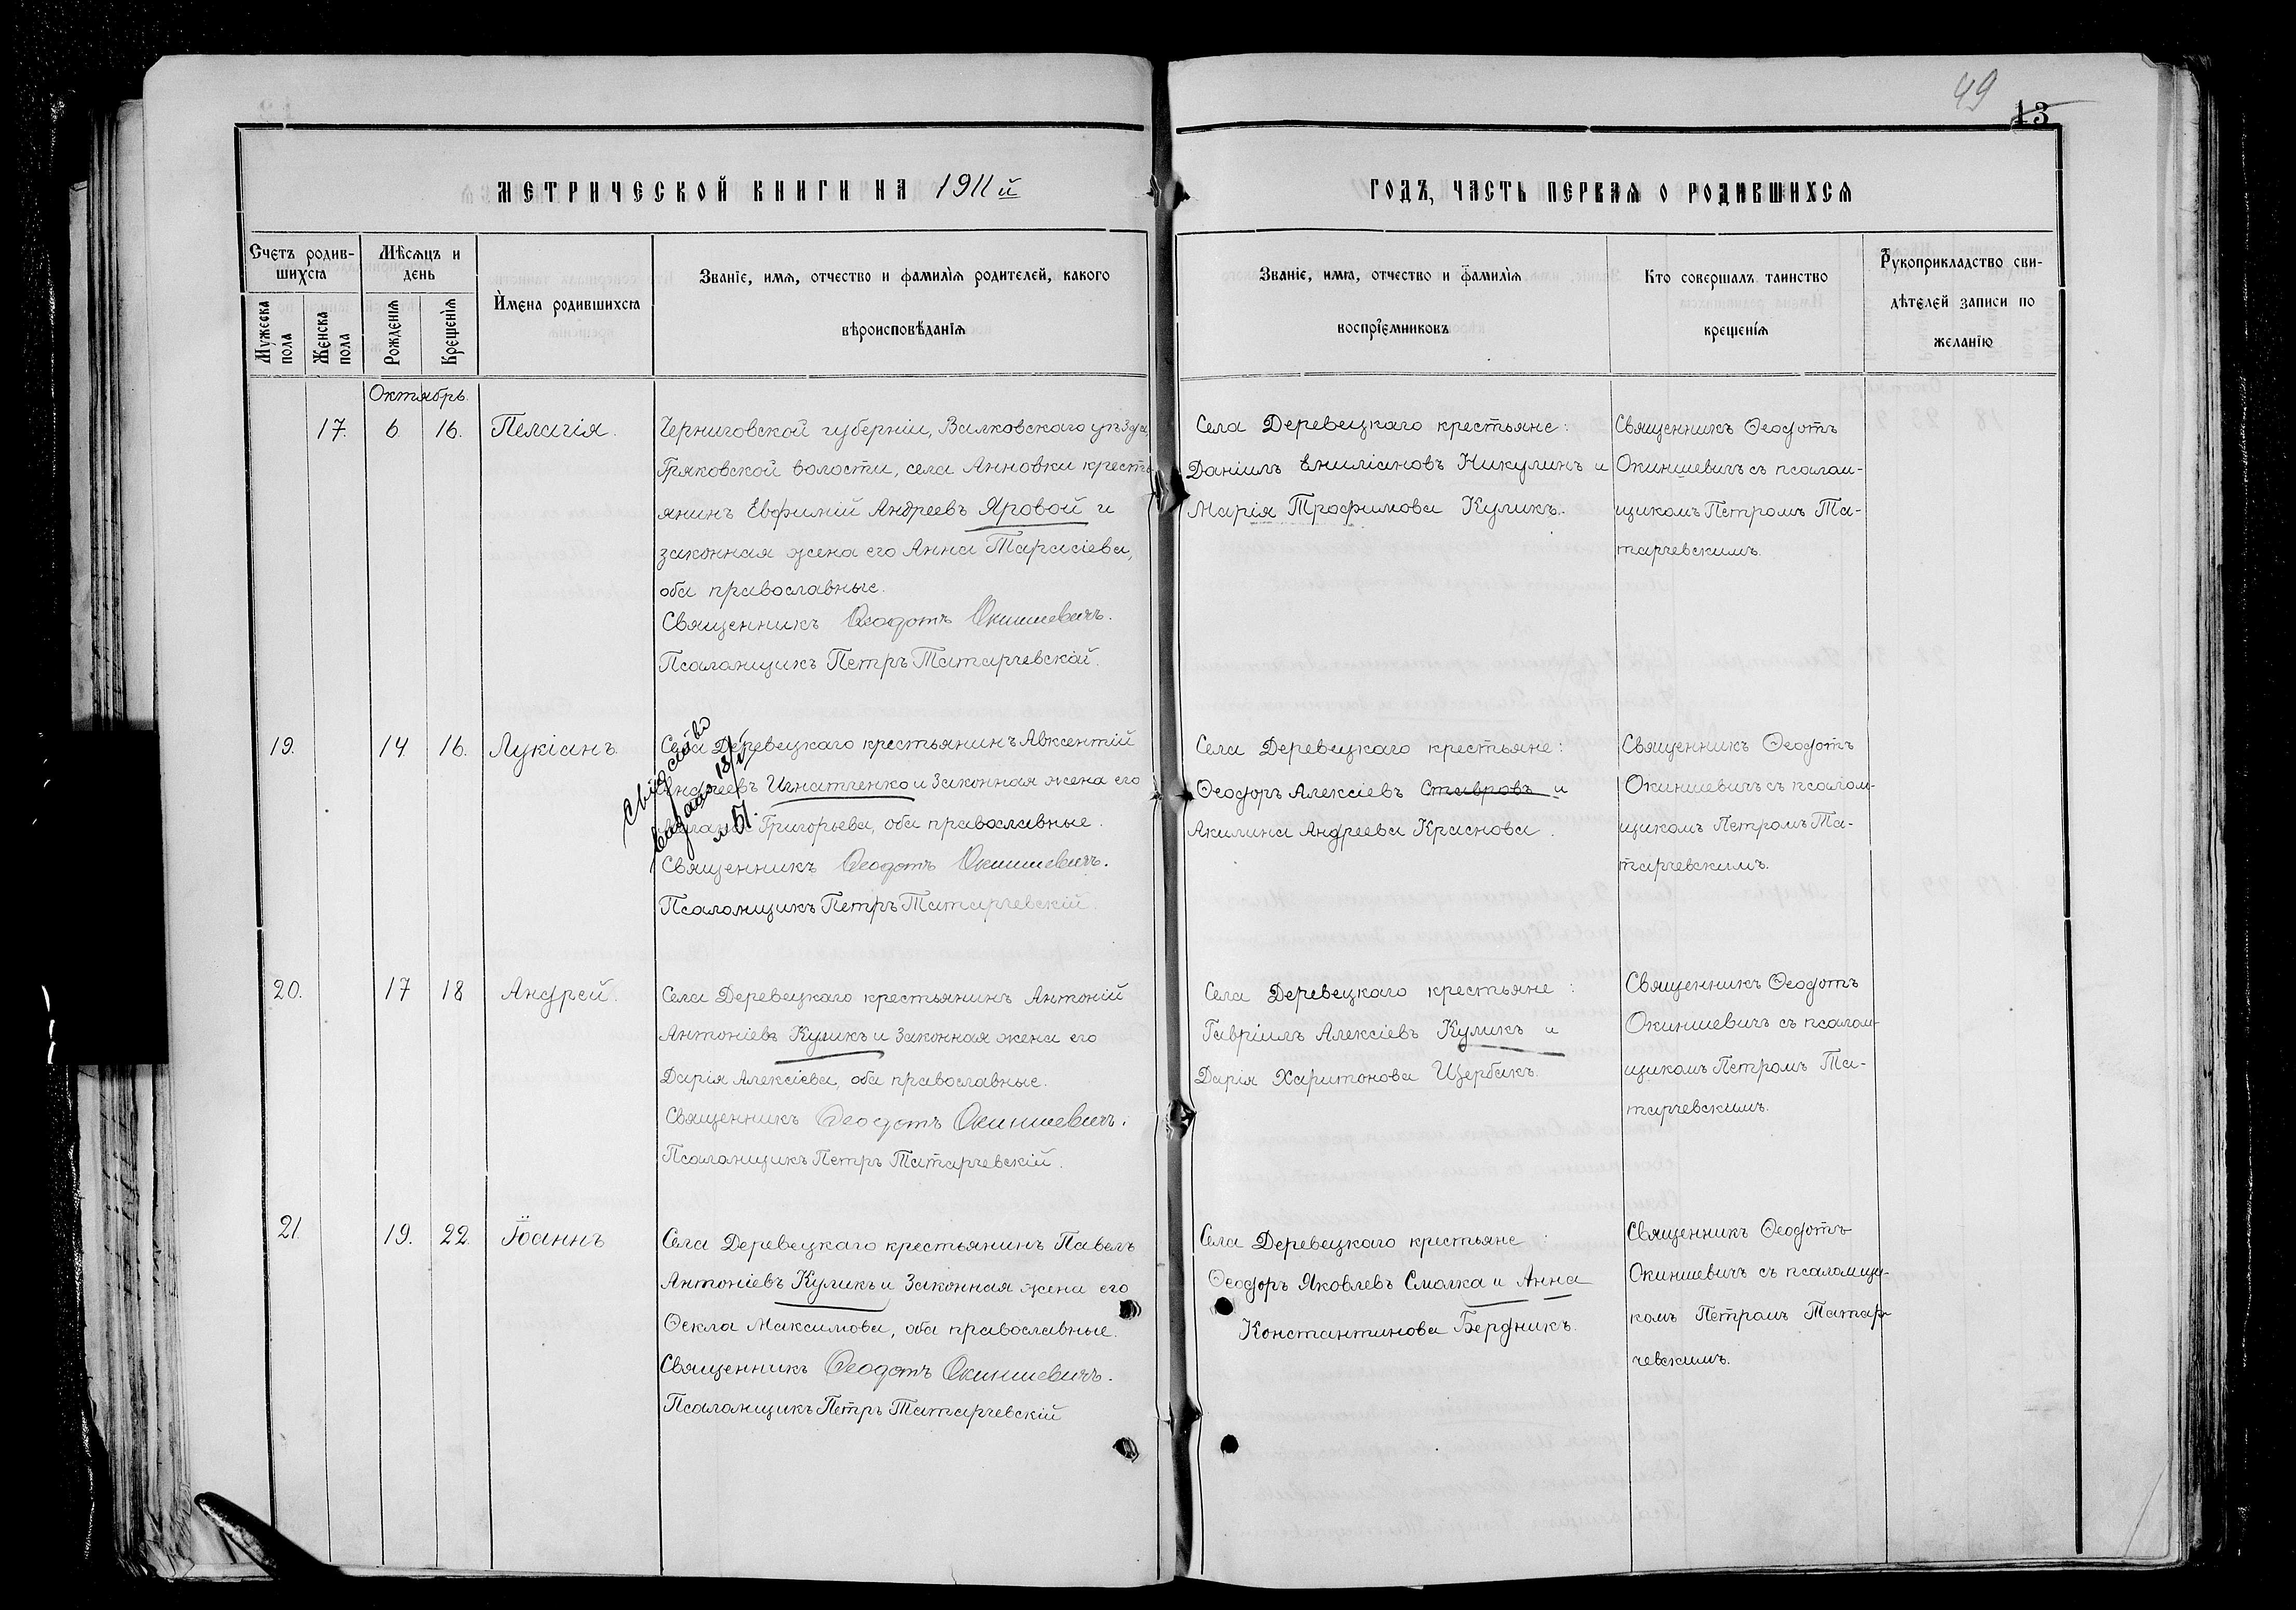 49
13
МЕТРИЧЕСКОЙ КНИГИ НА 1911й
ГОДЪ, ЧАСТЬ ПЕРВАЯ О РОДИВШИХСЯ
Счетъ родив-
шихся
Мѣсяцъ и
день
Мужеска
пола
Женска
пола
Рожденія
Крещенія
Имена родившихся
Званіе, имя, отчество и фамилія родителей, какого
вѣроисповѣданія
Званіе, имя, отчество и фамилія
воспріемниковъ
Кто совершалъ таинство
крещенія
Рукоприкладство сви-
дѣтелей записи по
желанію
Октябрь.
17. 6 16. Пелагія.
Черниговской губерніи, Валковскаго уѣзда,
волости, села Анновки кресть
янинъ Евфимій Андреевъ Яровой и
законная жена его Анна Тарасіева,
оба православные.
Священникъ Ѳеодотъ Окиншевичъ.
Псаломщикъ Петръ Татарчевскій.
Села Деревецкаго крестьяне:
Даніилъ Никулинъ и
Марія Трофимова Куликъ.
Священникъ Ѳеодотъ
Окиншевичъ съ псалом-
щикомъ Петромъ Та-
тарчевскимъ.
19. 14 16. Лукіанъ.
Села Деревецкаго крестьянинъ Авксентій
Игнатченко и законная жена его
Григорьева, оба православные.
Священникъ Ѳеодотъ Окиншевичъ.
Псаломщикъ Петръ Татарчевскій.
Села Деревецкаго крестьяне:
Ѳеодоръ Алексіевъ Ставровъ и
Акилина Андреева Краснова.
Священникъ Ѳеодотъ
Окиншевичъ съ псалом-
щикомъ Петромъ Та-
тарчевскимъ.
20. 17 18 Андрей.
Села Деревецкаго крестьянинъ Антоній
Антоніевъ Куликъ и законная жена его
Дарія Алексіева, оба православные.
Священникъ Ѳеодотъ Окиншевичъ.
Псаломщикъ Петръ Татарчевскій.
Села Деревецкаго крестьяне:
Гавріилъ Алексіевъ Куликъ и
Дарія Харитонова Щербакъ.
Священникъ Ѳеодотъ
Окиншевичъ съ псалом-
щикомъ Петромъ Та-
тарчевскимъ.
21 19. 22. Іоаннъ
Села Деревецкаго крестьянинъ Павелъ
Антоніевъ Куликъ и законная жена его
Ѳекла Максимова, оба православные.
Священникъ Ѳеодотъ Окиншевичъ.
Псаломщикъ Петръ Татарчевскій
Села Деревецкаго крестьяне:
Ѳеодоръ Яковлевъ Смолка и Анна
Константинова Бердникъ.
Священникъ Ѳеодотъ
Окиншевичъ съ псаломщи-
комъ Петромъ Татар-
чевскимъ.